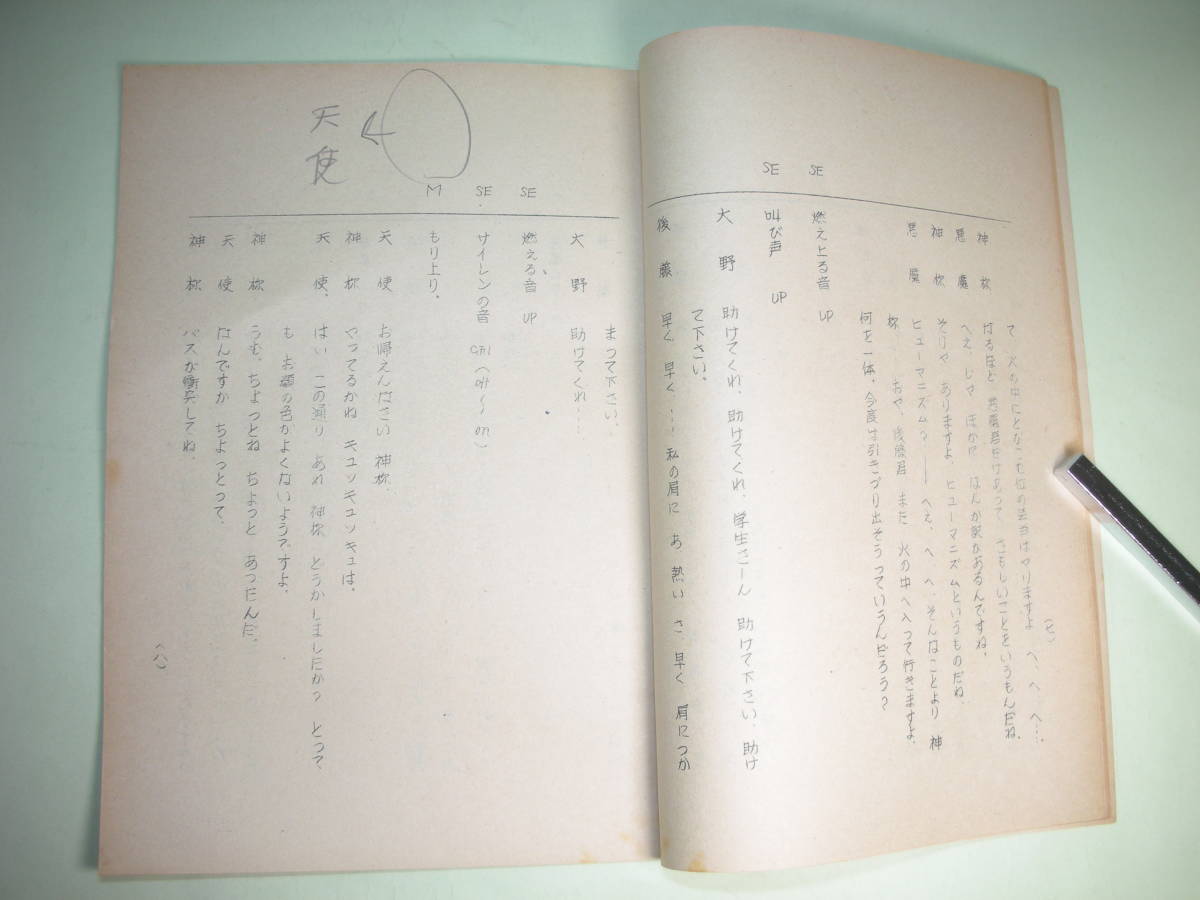 て、火の中にとびこむ位の芸当はやりますよ へ、へ、へ…。
神様 なるほど 悪魔君だけあって、さもしいことをいうもんだね。
悪魔 へえ、じや ほかに なんか策があるんですね。
神様 そりや ありますよ、ヒューマニズムというものだね。
悪魔 ヒューマニズム？――へえ、へ、へ、そんなことより 神
様、おや、後藤君 また 火の中へ入って行きますよ。
何を一体、今度は引きづり出そうっていうんだろう？
SE 燃え上る音 UP
SE 叫び声 UP
大野 助けてくれ、助けてくれ、学生さーん 助けて下さい、助け
て下さい。
後藤 早く、早く、…… 私の肩に あ、熱い さ、早く 肩につか
（七）
まって下さい。
大野 助けてくれ……
SE 燃える音 UP
SE サイレンの音
M もり上り。
天使 お帰えんなさい 神様。
神様 やってるかね キュッキュッキュは。
天使 はい、この通り あれ 神様 どうかしましたか？ とって
も お顔の色がよくないようですよ。
神様 うむ、ちょっとね ちょっと あったんだ。
天使 なんですか ちょっとって。
神様 バスが衝突してね。
（八）
天使